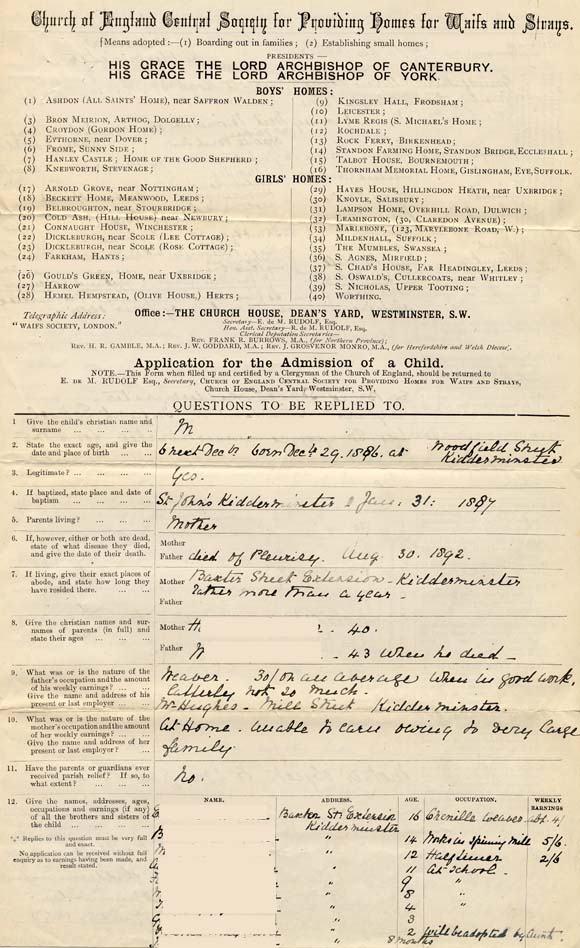 Church of England Central Society for Providing Homes for Waifs and Strays.
[Means adopted:—(1) Boarding out in families; (2) Establishing small homes;
PRESIDENTS—
HIS GRACE THE LORD ARCHBISHOP OF CANTERBURY.
HIS GRACE THE LORD ARCHBISHOP OF YORK.
BOYS' HOMES:
(1) Ashdon (All Saints' Home), near Saffron Walden;
(3) Bron Meirion, Arthog, Dolgelly;
(4) Croydon (Gordon Home);
(5) Eythorne, near Dover;
(6) Frome, Sunny Side;
(7) Hanley Castle; Home of the Good Shepherd;
(8) Knebworth, Stevenage;
(9) Kingsley Hall, Frodsham;
(10) Leicester;
(11) Lyme Regis (S. Michael's Home;
(12) Rochdale;
(13) Rock Ferry, Birkenhead;
(14) Standon Farming Home, Standon Bridge, Eccleshall;
(15) Talbot House, Bournemouth;
(16) Thornham Memorial Home, Gislingham, Eye, Suffolk.
GIRLS' HOMES:
(17) Arnold Grove, near Nottingham;
(18) Beckett Home, Meanwood, Leeds;
(19) Belbroughton, near Stourbridge;
(20) Cold Ash, (Hill House) near Newbury;
(21) Connaught House, Winchester;
(22) Dickleburgh, near Scole (Lee Cottage);
(23) Dickleburgh, near Scole (Rose Cottage);
(24) Fareham, Hants;
(26) Gould's Green, Home, near Uxbridge;
(27) Harrow
(28) Hemel Hempstead, (Olive House,) Herts;
(29) Hayes House, Hillingdon Heath, near Uxbridge;
(30) Knoyle, Salisbury;
(31) Lampson Home, Overhill Road, Dulwich;
(32) Leamington, (30, Claredon Avenue);
(33) Marlebone, (123, Marylebone Road, W.);
(34) Mildenhall, Suffolk;
(35) The Mumbles, Swansea;
(36) S. Agnes, Mirfield;
(37) S. Chad's House, Far Headingley, Leeds;
(38) S. Oswald's, Cullercoats, near Whitley;
(39) S. Nicholas, Upper Tooting;
(40) Worthing.
Telegraphic Address:
"WAIFS SOCIETY, LONDON."
Office:—THE CHURCH HOUSE, DEAN'S YARD, WESTMINSTER, S.W.
Secretary—E. de M. RUDOLF, Esq.
Hon. Asst. Secretary—R. de M. RUDOLF, Esq.
Clerical Deputation Secretaries—
Rev. FRANK R. BURROWS, M.A., (for Northern Province);
Rev. H. R. GAMBLE, M.A.; Rev. J. W. GODDARD, M.A.; Rev. J. GROSVENOR MONRO, M.A., (for Herefordshire and Welsh Diocese).
Application for the Admission of a Child.
NOTE.—This Form when filled up and certified by a Clergyman of the Church of England, should be returned to
E. de M. RUDOLF Esq., Secretary, Church of England Central Society for Providing Homes for Waifs and Strays,
Church House, Dean's Yard, Westminster, S.W.
QUESTIONS TO BE REPLIED TO.
1 Give the child's christian name and surname
M
2. State the exact age, and give the date and place of birth
6 next Decbr born Decbr 29. 1886. at Woodfield Street
Kidderminster
3. Legitimate?
Yes.
4. If baptized, state place and date of baptism
St John's Kidderminster Jan: 31: 1887
5. Parents living?
Mother
6. If, however, either or both are dead, state of what disease they died, and give the date of their death.
Mother
Father died of Pleurisy. Aug. 30. 1892.
7. If living, give their exact places of abode, and state how long they have resided there.
Mother Baxter Street Extension - Kidderminster
rather more than a year -
Father
8. Give the christian names and surnames of parents (in full) and state their ages
Mother H 40.
Father W - 43 when he died -
9. What was or is the nature of the father's occupation and the amount of his weekly earnings?
Give the name and address of his present or last employer
Weaver. 30/ on an average when in good work,
latterly not so much.
Mr Hughes - Mill Street Kidderminster.
10. What was or is the nature of the mother's occupation and the amount of her weekly earnings?
Give the name and address of her present or last employer?
At Home. Unable to earn owing to very large
family
11. Have the parents or guardians ever received parish relief? If so, to what extent?
No.
12. Give the names, addresses, ages, occupations and earnings (if any) of all the brothers and sisters of the child
Replies to this question must be very full and exact.
No application can be received without full enquiry as to earnings having been made, and result stated.
NAME. ADDRESS. AGE. OCCUPATION. WEEKLY EARNINGS
E Baxter St. Extension 16 Chenille weaver abt. 4/
Kidderminster
B " 14 Works in Spinning Mill 5/6
M " 12 Half timer 2/6
" 11 At School -
" 9 "
" 8 "
" 4 "
" 3
" 2 will be adopted by Aunt.
" 8 months